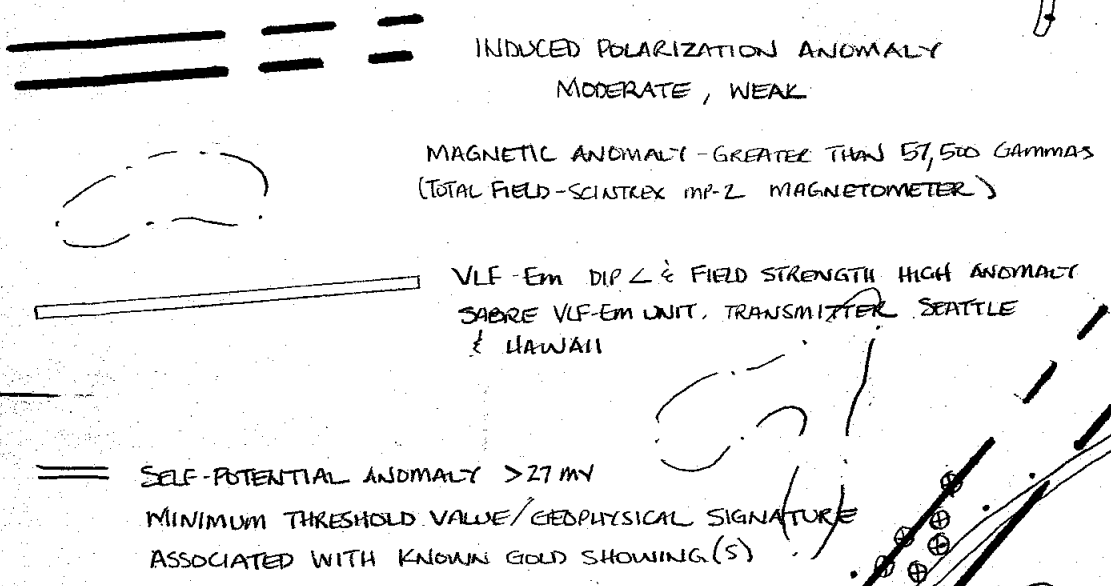 INDUCED POLARIZATION ANOMALY
MODERATE, WEAK
MAGNETIC ANOMALY - GREATER THAN 57,500 GAMMAS
(TOTAL FIELD - SCINTREX MP-2 MAGNETOMETER)
VLF-EM DIP ∠ & FIELD STRENGTH HIGH ANOMALY
SABRE VLF-EM UNIT. TRANSMITTER SEATTLE
& HAWAII
SELF-POTENTIAL ANOMALY >27 MV
MINIMUM THRESHOLD VALUE/GEOPHYSICAL SIGNATURE
ASSOCIATED WITH KNOWN GOLD SHOWING(S)